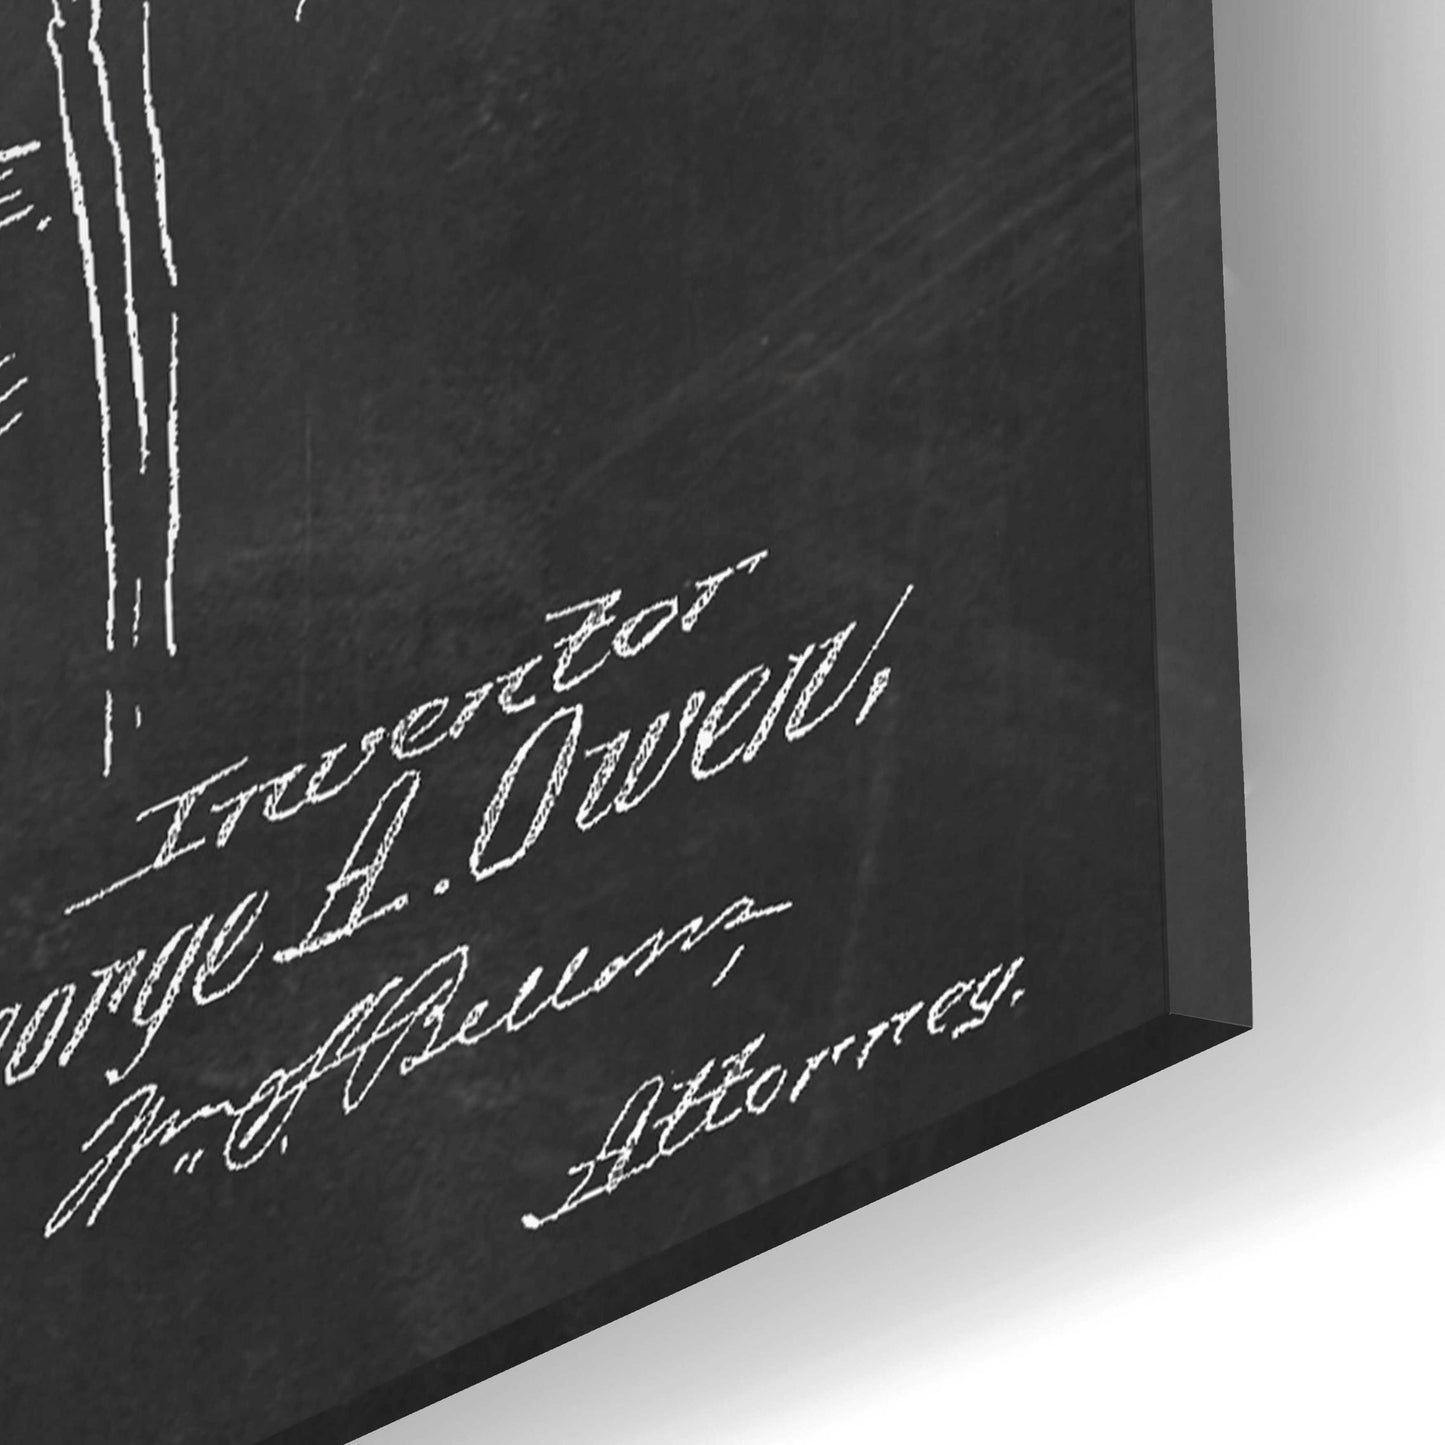 Inventor
George A. Owen,
Wm F. Bellows,
Attorney.